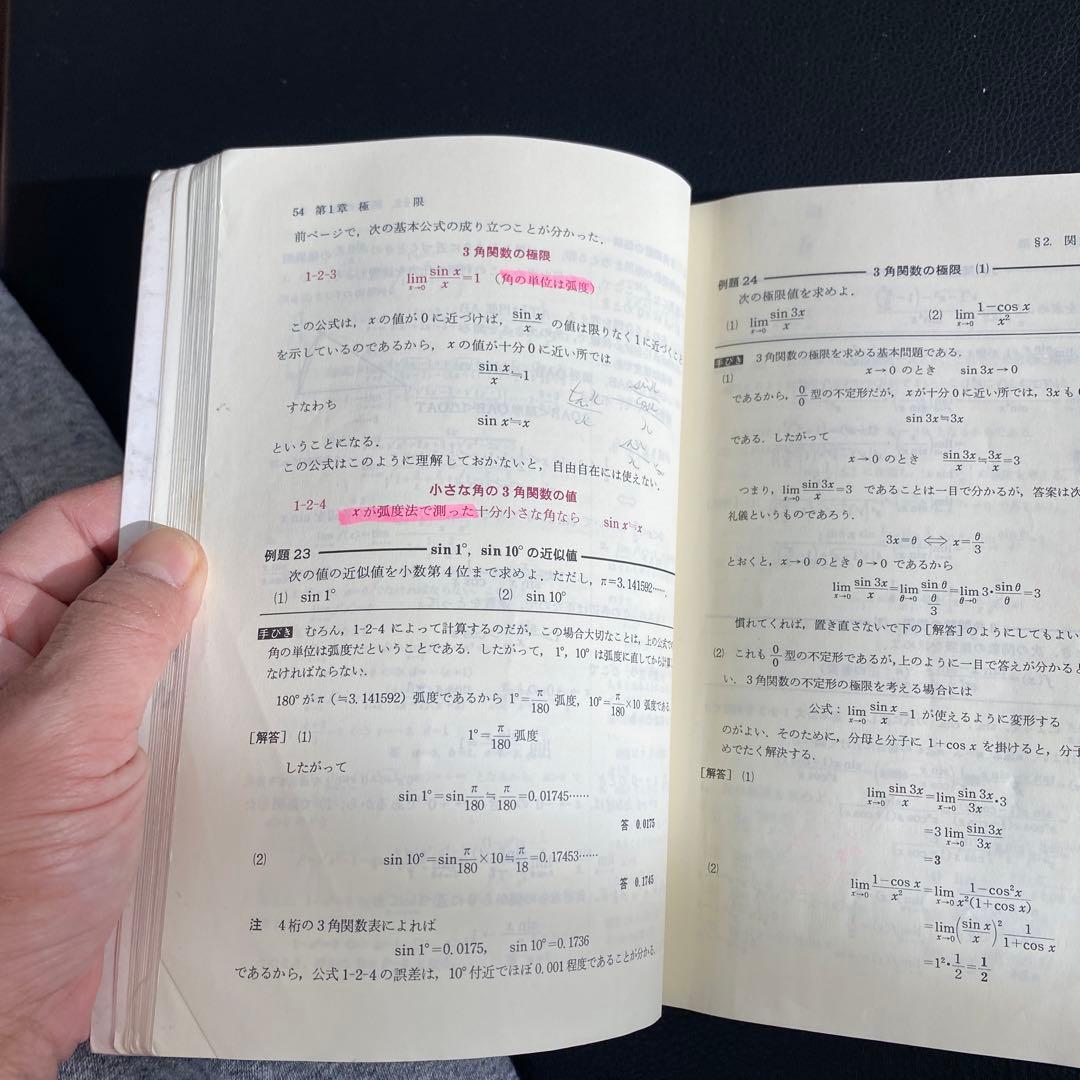 54 第1章 極 限
前ページで,次の基本公式の成り立つことが分かった.
3角関数の極限
1-2-3 lim x→0 sin x/x =1 (角の単位は弧度)
この公式は, x の値が0に近づけば, sin x/x の値は限りなく1に近づくこと
を示しているのであるから, x の値が十分0に近い所では
sin x/x ≒1
すなわち
sin x≒x
ということになる.
この公式はこのように理解しておかないと,自由自在には使えない.
小さな角の3角関数の値
1-2-4 x が弧度法で測った十分小さな角なら sin x≒x
例題 23 sin 1°, sin 10° の近似値
次の値の近似値を小数第4位まで求めよ.ただし, π=3.141592……
(1) sin 1° (2) sin 10°
手びき むろん, 1-2-4 によって計算するのだが,この場合大切なことは,上の公式で
角の単位は弧度だということである.したがって, 1°, 10° は弧度に直してから計算
なければならない.
180° が π (≒3.141592) 弧度であるから 1°=π/180 弧度, 10°=π/180×10 弧度である.
[解答] (1) 1°=π/180 弧度
したがって
sin 1°=sin π/180≒π/180=0.01745……
答 0.0175
(2) sin 10°=sin π/180×10≒π/18=0.17453……
答 0.1745
注 4桁の3角関数表によれば
sin 1°=0.0175, sin 10°=0.1736
であるから,公式1-2-4の誤差は, 10° 付近でほぼ 0.001 程度であることが分かる.
§2. 関
例題 24 3角関数の極限 (1)
次の極限値を求めよ.
(1) lim x→0 sin 3x/x (2) lim x→0 1-cos x/x²
手びき 3角関数の極限を求める基本問題である.
(1) x→0 のとき sin 3x→0
であるから, 0/0 型の不定形だが, x が十分0に近い所では, 3x も
sin 3x≒3x
である.したがって
x→0 のとき sin 3x/x≒3x/x=3
つまり, lim x→0 sin 3x/x=3 であることは一目で分かるが,答案は次
礼儀というものであろう.
3x=θ ⟺ x=θ/3
とおくと, x→0 のとき θ→0 であるから
lim x→0 sin 3x/x=lim θ→0 sin θ/(θ/3)=lim θ→0 3・sin θ/θ=3
慣れてくれば,置き直さないで下の[解答]のようにしてもよい
(2) これも 0/0 型の不定形であるが,上のように一目で答えが分かると
い. 3角関数の不定形の極限を考える場合には
公式: lim x→0 sin x/x=1 が使えるように変形する
のがよい.そのために,分母と分子に 1+cos x を掛けると,分子
めでたく解決する.
[解答] (1)
lim x→0 sin 3x/x=lim x→0 sin 3x/3x・3
=3 lim x→0 sin 3x/3x
=3
(2)
lim x→0 1-cos x/x²=lim x→0 1-cos²x/x²(1+cos x)
=lim x→0 (sin x/x)² 1/1+cos x
=1²・1/2=1/2